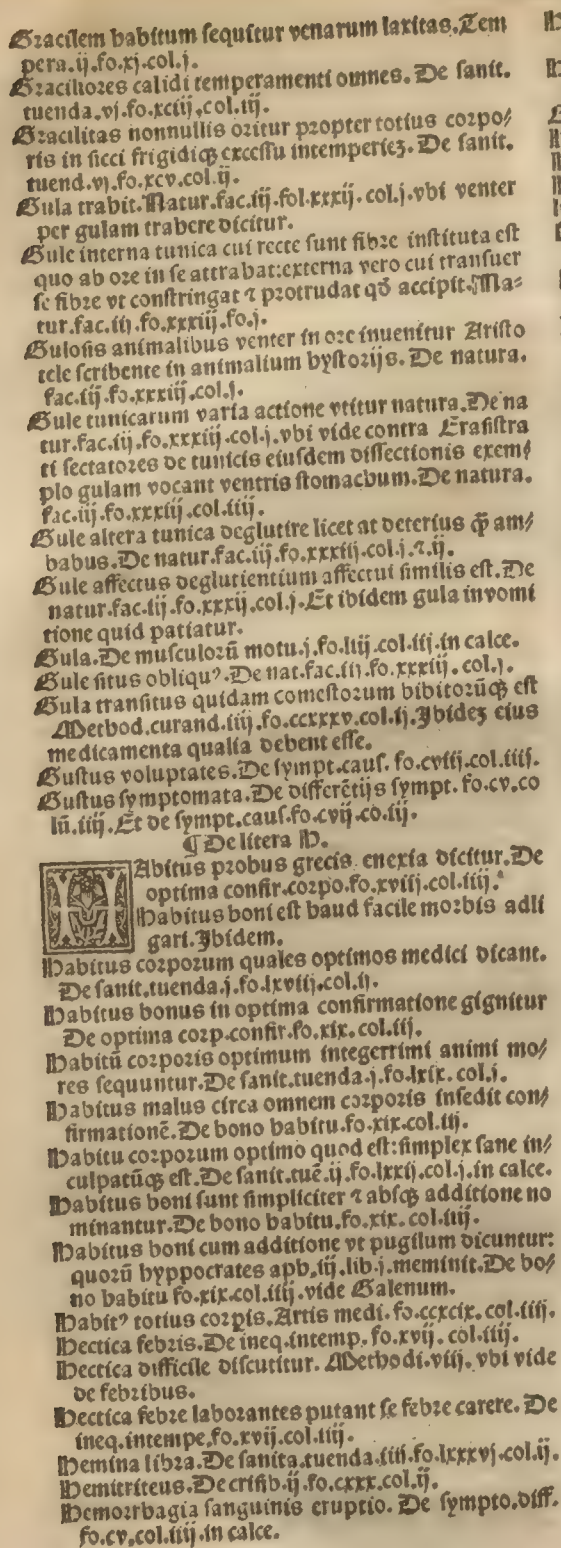 Gracilem habitum sequitur venarum laxitas. Tem
pera.ij.fo.xj.col.j.
Graciliores calidi temperamenti omnes. De sanit.
tuenda.vj.fo.xciij.col.iij.
Gracilitas nonnullis oritur propter totius corpo/
ris in sicci frigidiqȝ excessu intemperieȝ. De sanit.
tuend.vj.fo.xcv.col.ij.
Gula trahit. Natur.fac.iij.fol.xxxij.col.j.vbi venter
per gulam trahere dicitur.
Gule interna tunica cui recte sunt fibre instituta est
quo ab ore in se attrahat:externa vero cui transuer
se fibre vt constringat ⁊ protrudat qđ accipit. Na=
tur.fac.iij.fo.xxxiij.fo.j.
Gulosis animalibus venter in ore inuenitur Aristo
tele scribente in animalium hystorijs. De natura.
fac.iij.fo.xxxiij.col.j.
Gule tunicarum varia actione vtitur natura. De na
tur.fac.iij.fo.xxxiij.col.j.vbi vide contra Erasistra
ti sectatores de tunicis eiusdem dissectionis exem/
plo gulam vocant ventris stomachum. De natura.
fac.iij.fo.xxxiij.col.iiij.
Gule altera tunica deglutire licet at deterius q̃ am/
babus. De natur.fac.iij.fo.xxxiij.col.j.⁊.ij.
Gule affectus deglutientium affectui similis est. De
natur.fac.iij.fo.xxxij.col.j. Et ibidem gula in vomi
tione quid patiatur.
Gula. De musculorũ motu.j.fo.liij.col.iij.in calce.
Gule situs obliquꝰ. De nat.fac.iij.fo.xxxiij.col.j.
Gula transitus quidam comestorum bibitorũqȝ est
Method.curand.iiij.fo.ccxxxv.col.ij. Ibideȝ eius
medicamenta qualia debent esse.
Gustus voluptates. De sympt.caus.fo.cviij.col.iiij.
Gustus symptomata. De differẽtijs sympt.fo.cv.co
lũ.iiij. Et de sympt.caus.fo.cvij.co.iij.
¶ De litera H.
HAbitus probus grecis enexia dicitur. De
optima confir.corpo.fo.xviij.col.iiij.
Habitus boni est haud facile morbis adli
gari. Ibidem.
Habitus corporum quales optimos medici dicant.
De sanit.tuenda.j.fo.lxviij.col.ij.
Habitus bonus in optima confirmatione gignitur
De optima corp.confir.fo.xix.col.iij.
Habitũ corporis optimum integerrimi animi mo/
res sequuntur. De sanit.tuenda.j.fo.lxix.col.j.
Habitus malus circa omnem corporis insedit con/
firmationẽ. De bono habitu.fo.xix.col.iij.
Habitu corporum optimo quod est:simplex sane in/
culpatũqȝ est. De sanit.tuẽ.ij.fo.lxxij.col.j.in calce.
Habitus boni sunt simpliciter ⁊ absqȝ additione no
minantur. De bono habitu.fo.xix.col.iiij.
Habitus boni cum additione vt pugilum dicuntur:
quorũ hyppocrates aph.iij.lib.j.meminit. De bo/
no habitu fo.xix.col.iiij.vide Galenum.
Habitꝰ totius corpis. Artis medi.fo.ccxcix.col.iiij.
Hectica febris. De ineq.intemp.fo.xvij.col.iiij.
Hectica difficile discutitur. Methodi.viij.vbi vide
de febribus.
Hectica febre laborantes putant se febre carere. De
ineq.intempe.fo.xvij.col.iiij.
Hemina libra. De sanita.tuenda.iiij.fo.lxxxvj.col.ij.
Hemitriteus. De crisib.ij.fo.cxxx.col.ij.
Hemorrhagia sanguinis eruptio. De sympto.diff.
fo.cv.col.iiij.in calce.